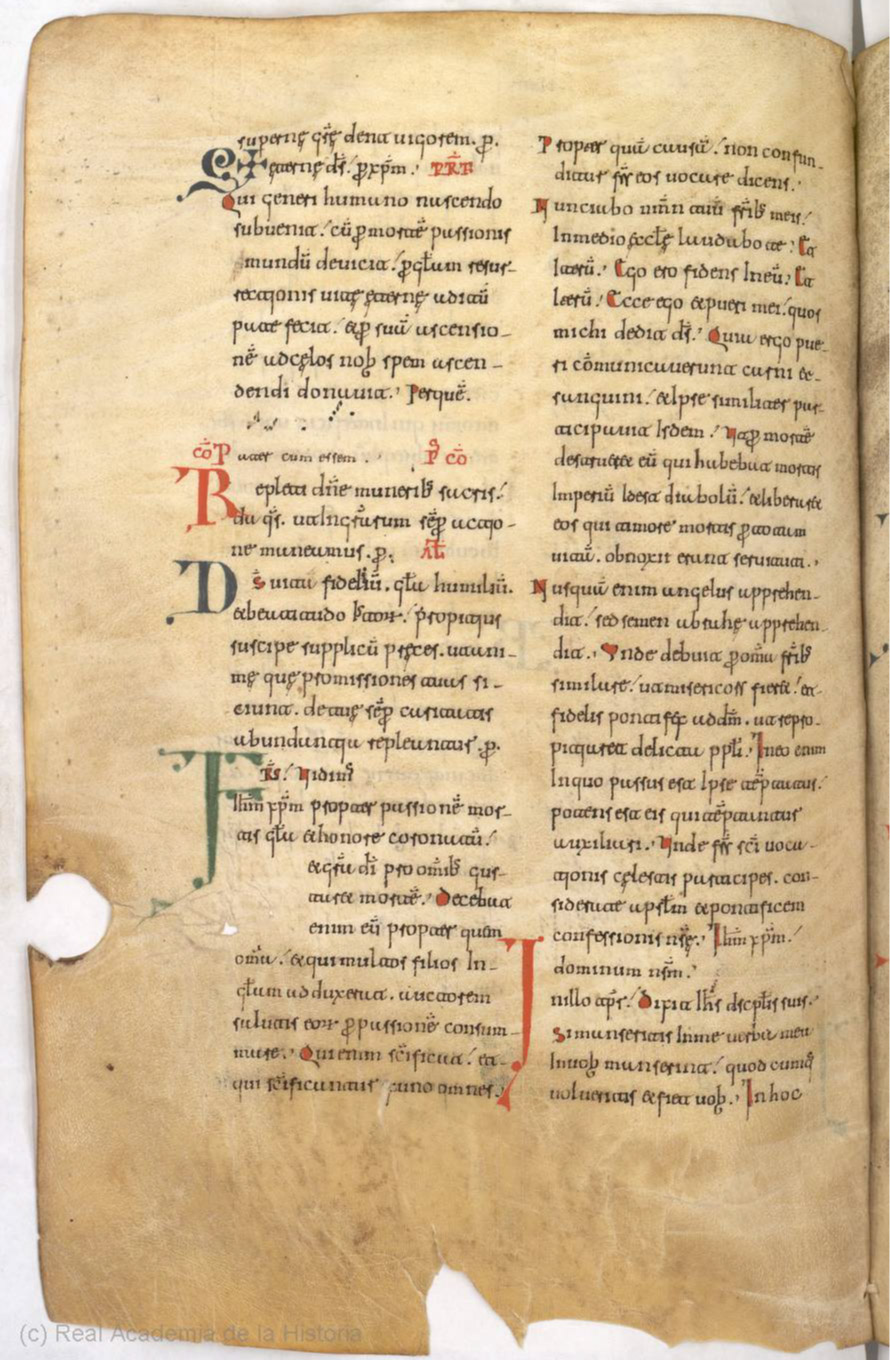 supernę qs̄ę dent uigorem. p.
Et ęternę ds̄. p xp̄m. PRF̄
Qui generi humano nascendo
subuenit. cū p mortē passionis
mundū deuicit. p gl̄am resur-
rectionis uitę ęternę aditū
patefecit. et p suā ascensio-
nē ad cęlos nob spem ascen-
dendi donauit. Per quē.
cōP uater cum essem. P cō
Repleti dn̄e munerib sacris.
da qs̄. ut in gr̄arum sēp actio-
ne maneamus. p. Al̄
Ds̄ uita fideliū. gl̄a humiliū.
et beatitudo propitius
suscipe supplicū pręces. ut ani-
mę quę promissiones tuas si-
tiunt. de tuę sēp caritatis
abundantia repleantur. p.
Frs̄. Uidim
Ihm̄ xp̄m propter passionē mor-
tis gl̄a et honore coronatū.
et gr̄a dī pro om̄ib gus-
taret mortē. Decebat
enim eū propter quem
om̄ia. et qui multos filios In-
gl̄am adduxerat. auctorem
salutis eorr p passionē consum-
mare. Qui enim sc̄ificat. et
qui sc̄ificantur ex uno omnes.
Propter quā causā. non confun-
ditur frs̄ eos uocare dicens.
Nunciabo nm̄n tuū frīb meis.
In medio ęccl̄ę laudabo te. Et
Iterū. Ego ero fidens In eū. Et
Iterū. Ecce ego et pueri mei. quos
michi dedit ds̄. Quia ergo pue-
ri cōmunicauerunt carni et
sanguini. et Ipse similiter par-
ticipauit Isdem. Ut p mortē
destrueret eū qui habebat mortis
Imperiū Id est diabolū. et liberaret
eos qui timore mortis p totam
uitā. obnoxii erant seruituti.
Nusquā enim angelus apprehen-
dit. sed semen abrahę apprehen-
dit. Unde debuit p om̄ia frīb
similare. ut misericors fieret. et
fidelis pontifęx ad dm̄. ut repro-
pitiaret delicta ppl̄i. In eo enim
In quo passus est Ipse tēptatus.
potens est eis qui tēptantur
auxiliari. Unde frs̄ sc̄i uoca-
tionis cęlestis participes. con-
siderate apl̄m et pontificem
confessionis nr̄ę. Ihm̄ xp̄m.
dominum nr̄m.
In illo tp̄r. Dixit Ihs̄ discpl̄is suis.
Si manseritis In me uerba mea
In uob manserint. quodcumq
uolueritis et fiet uob. In hoc
(c) Real Academia de la Historia